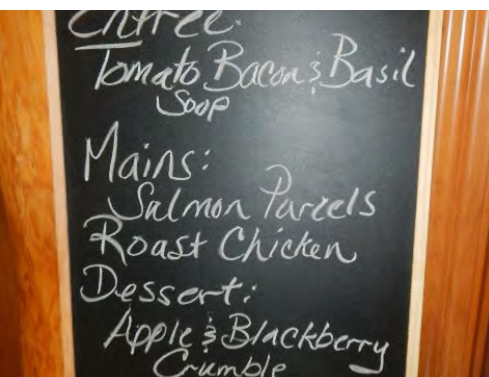 Entree:
Tomato Bacon & Basil
Soup
Mains:
Salmon Parcels
Roast Chicken
Dessert:
Apple & Blackberry
Crumble